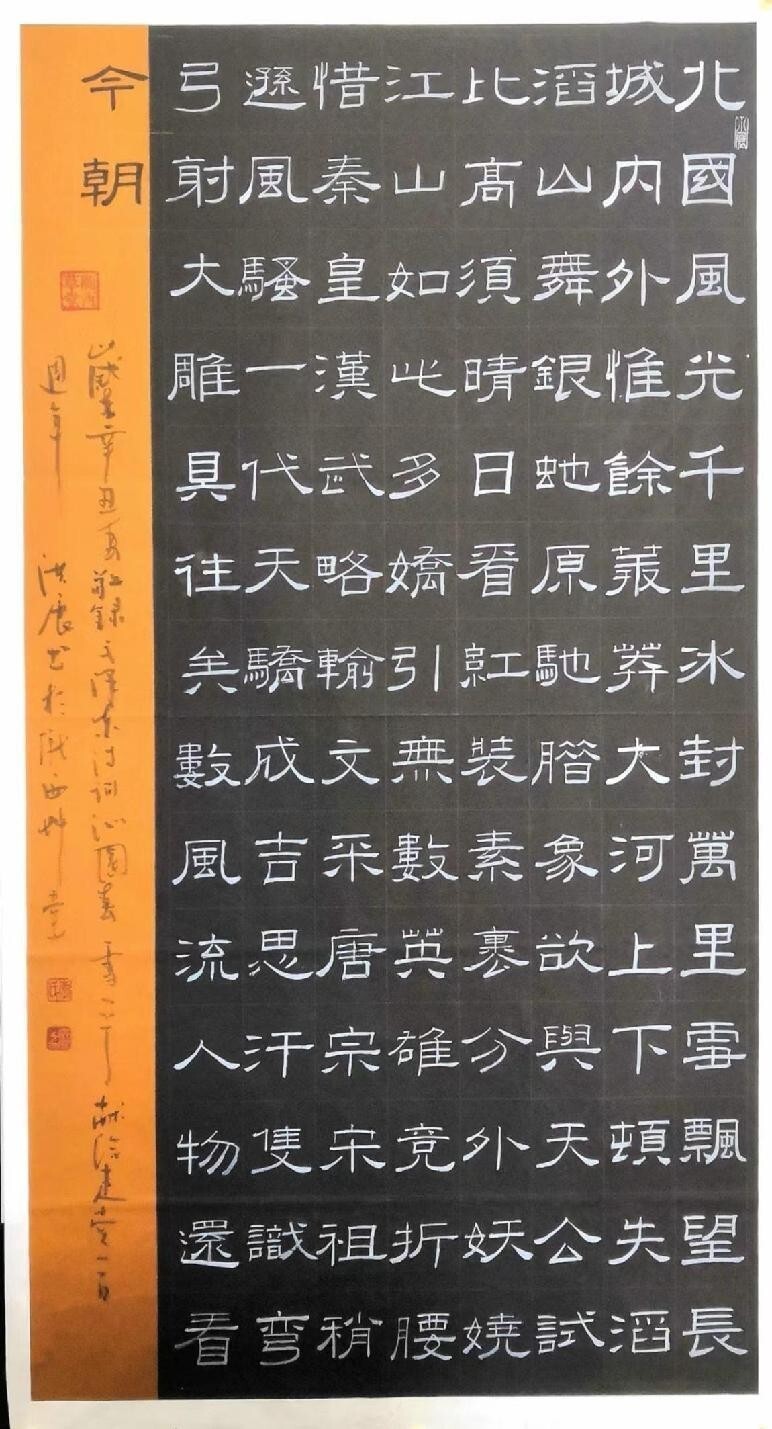 北國風光千里冰封萬里雪飄望長
城内外惟餘莽莽大河上下頓失滔
滔山舞銀蛇原馳腊象欲與天公試
比高須晴日看紅裝素裹分外妖嬈
江山如此多嬌引無數英雄竞折腰
惜秦皇漢武略輸文采唐宗宋祖稍
遜風騷一代天驕成吉思汗隻識彎
弓射大雕具往矣數風流人物還看
今朝
辛丑敬録毛澤東诗词沁園春雪献给建党一百
週年